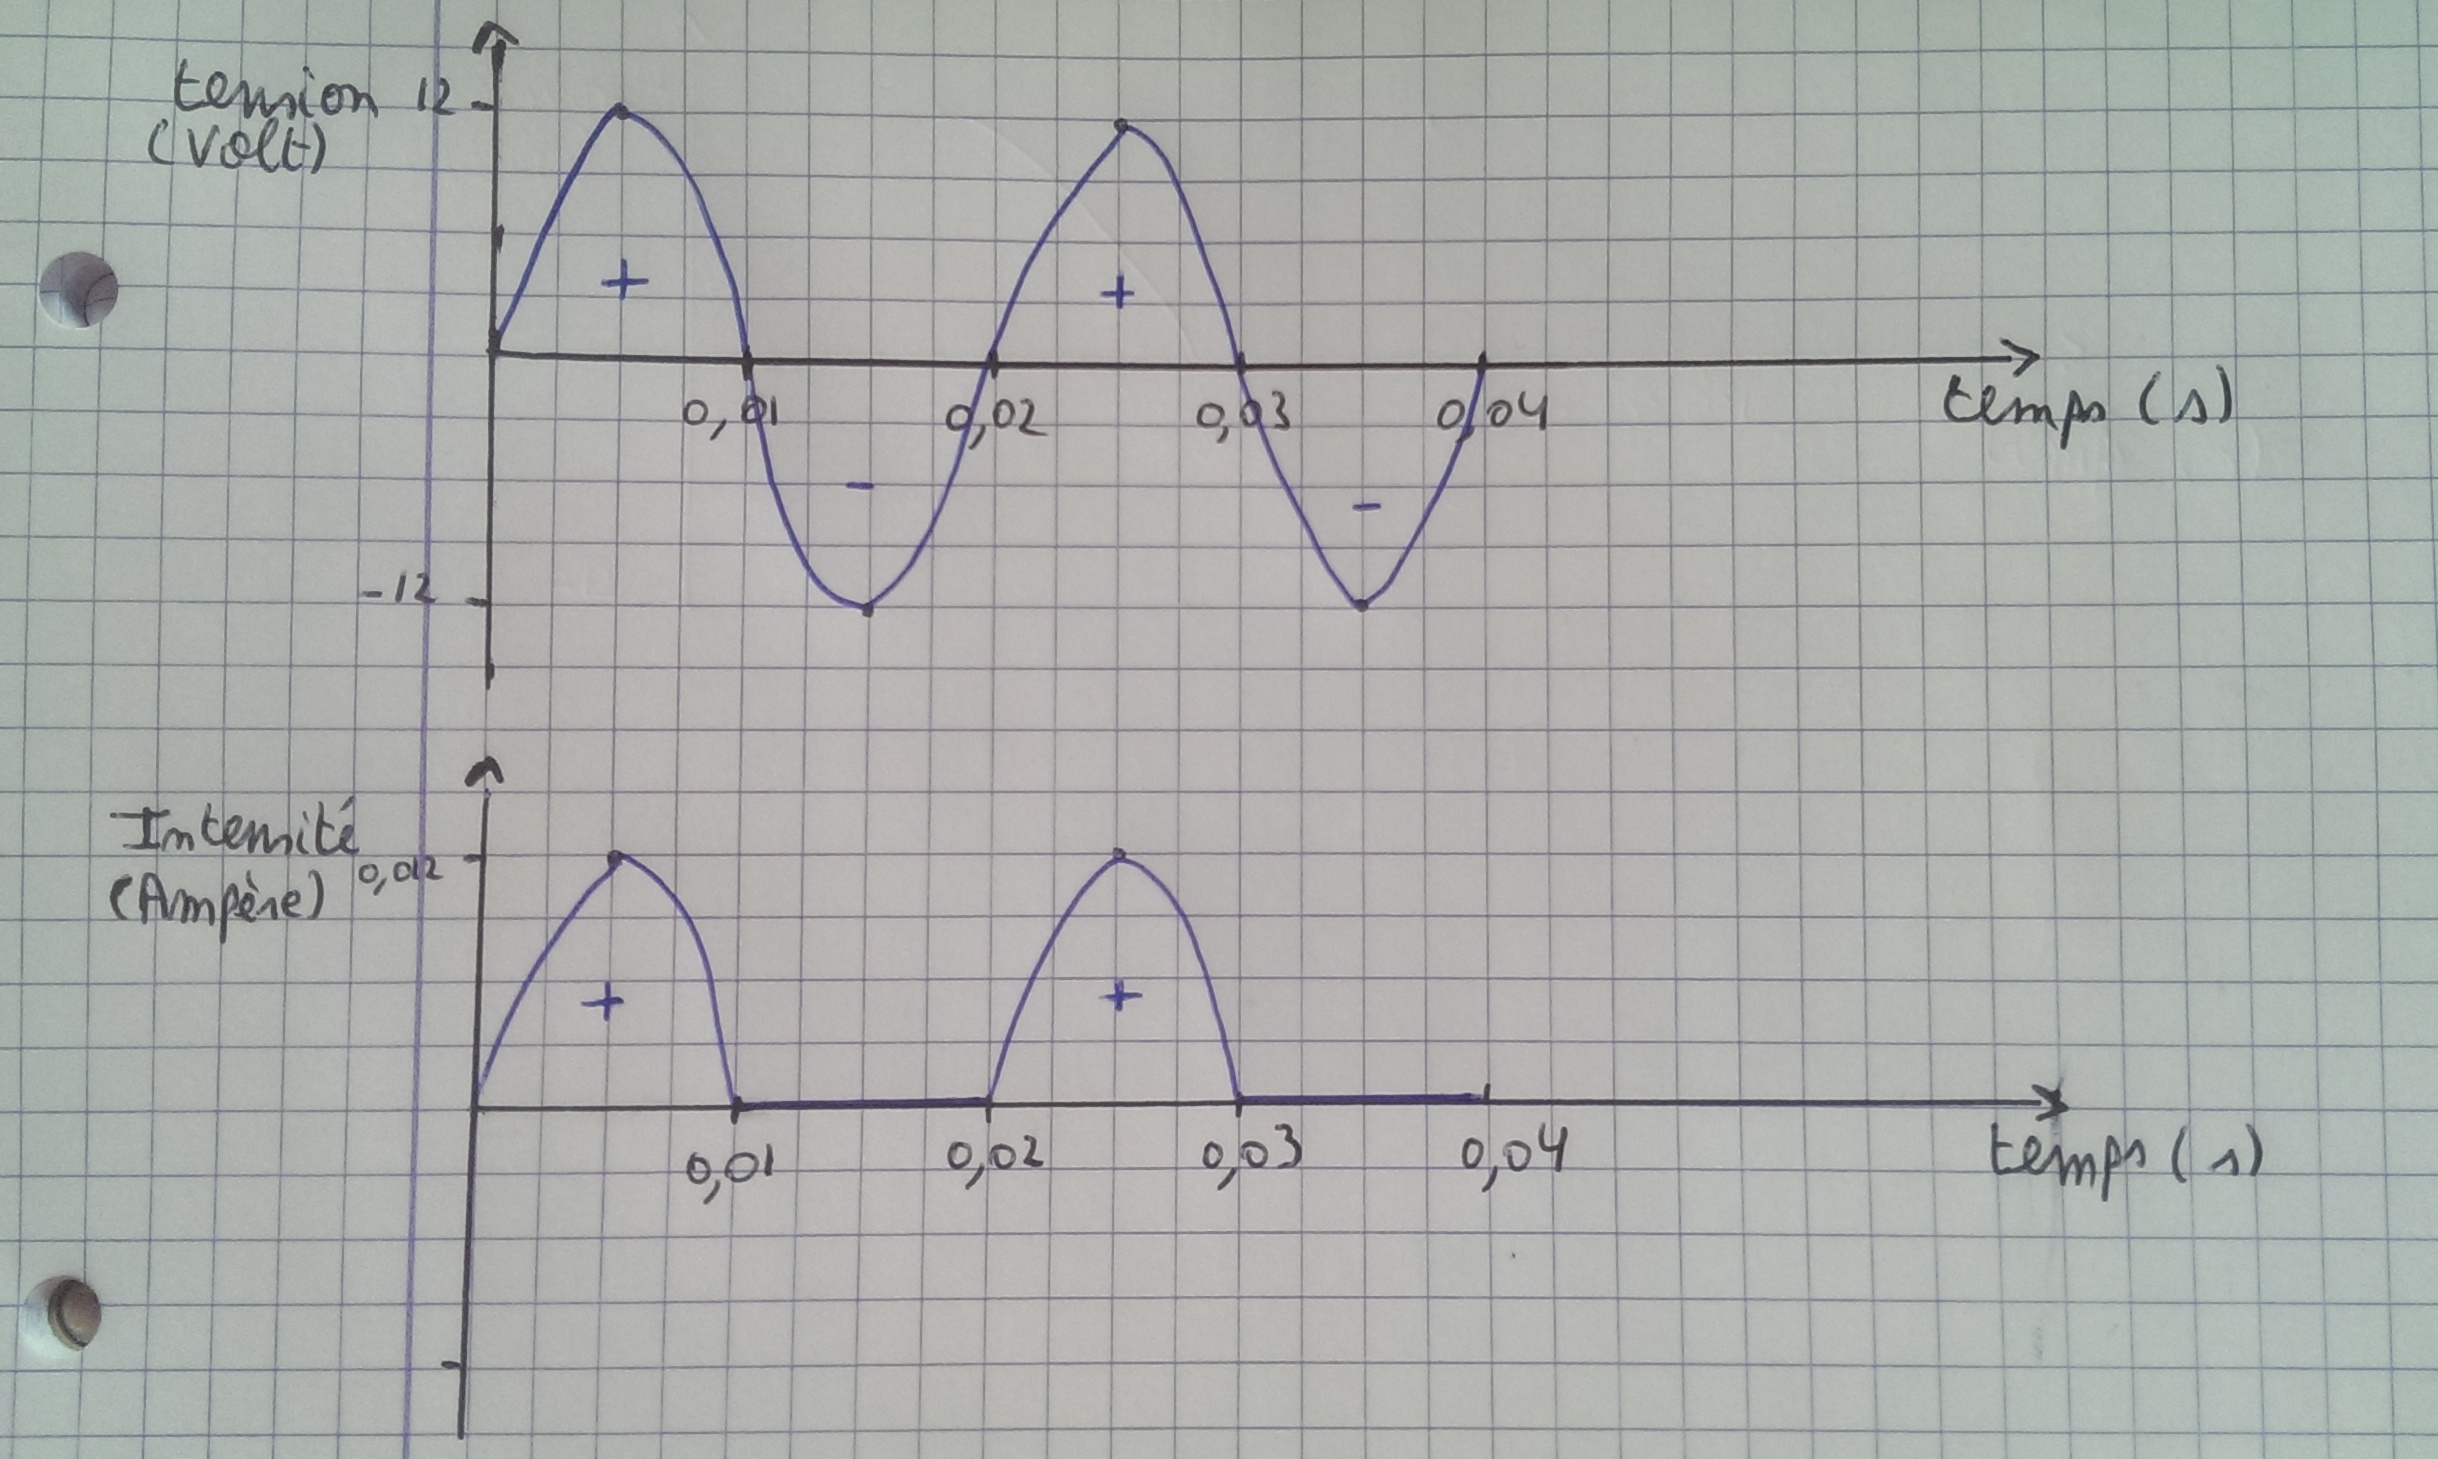 tension 12
(Volt)
+ +
0,01 0,02 0,03 0,04 temps (s)
- -
-12
Intensité
0,012
(Ampère)
+ +
0,01 0,02 0,03 0,04 temps (s)